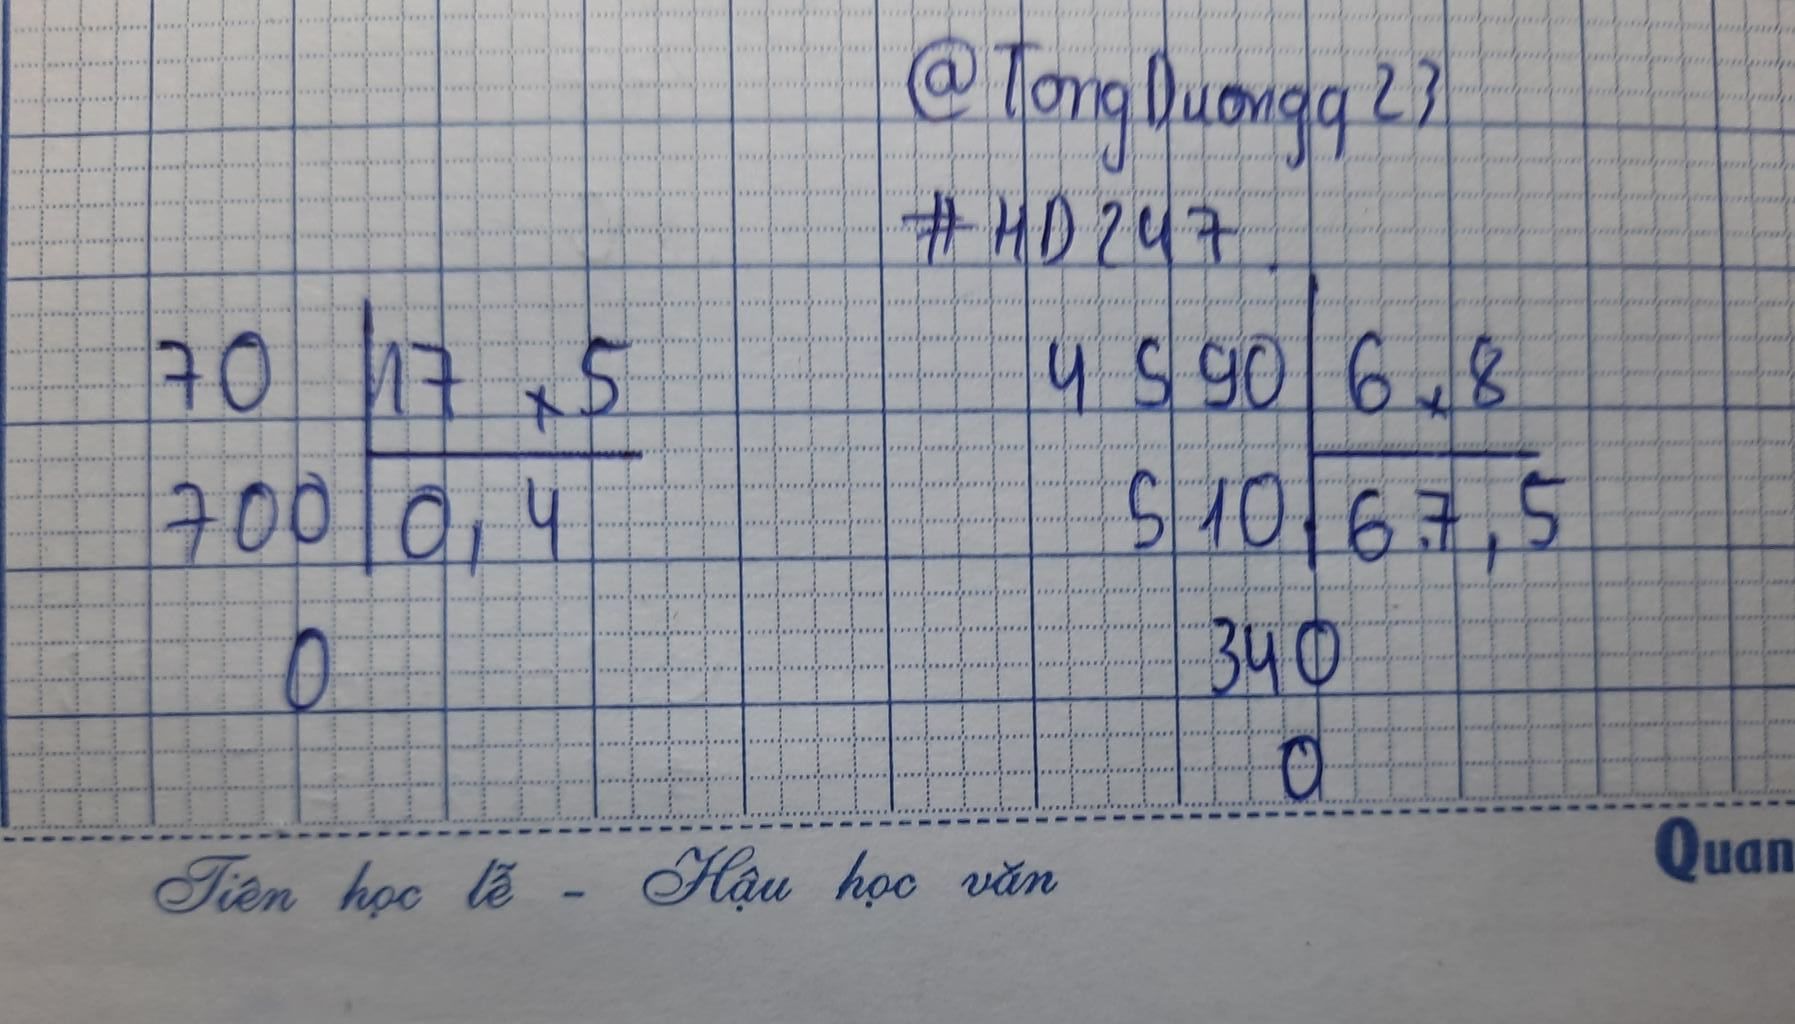 @TongDuongq23
#HD247
70 17,5
700 0,4
0
4590 6,8
510 67,5
340
0
Tiên học lễ - Hậu học văn
Quan